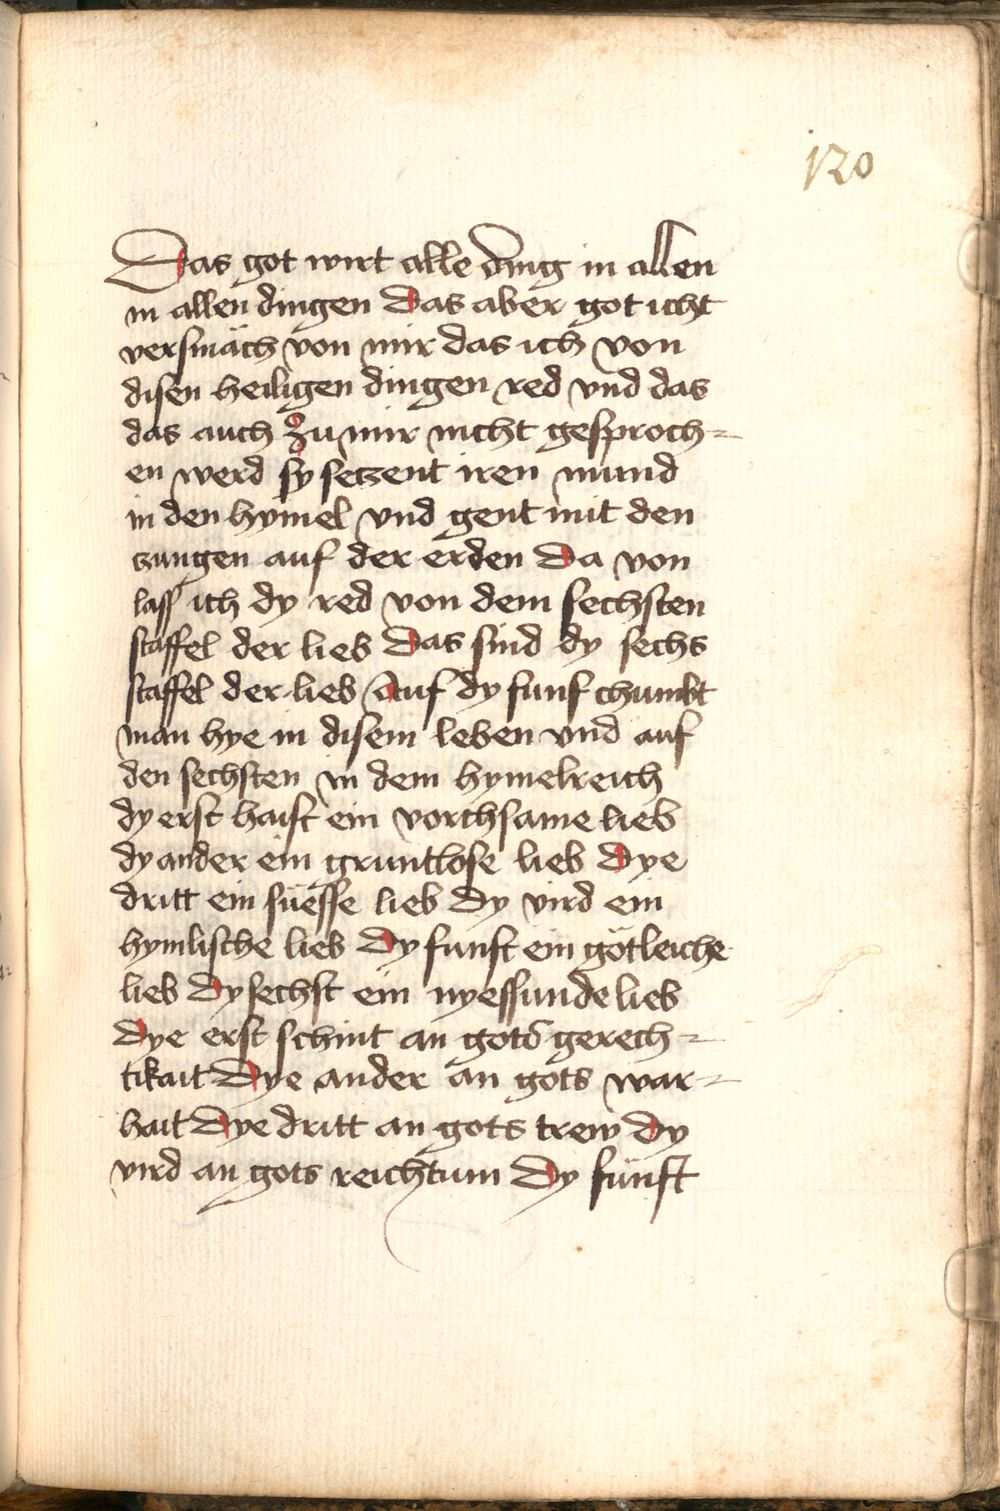 120
Das got wirt alle ding in allen
in allen dingen Das aber got icht
versmäch von mir das ich von
disen heiligen dingen red vnd das
das auch Zu mir nicht gesproch=
en werd sy setzent iren mund
in den hymel vnd gent mit den
zungen auf der erden Da von
lass ich dy red von dem sechsten
staffel der lieb Das sind dy sechs
staffel der lieb Auf dy funf chumbt
man hye in disem leben vnd auf
den sechsten in dem hymelreich
dy erst haist ein vorchsame lieb
dy ander ein gruntlose lieb Dye
dritt ein süesse lieb Dy vird ein
hymlische lieb Dy funft ein götleiche
lieb Dy sechst ein nyessunde lieb
Dye erst schint an gots gerech=
tikait Dye ander an gots war=
hait Dye dritt an gots trew Dy
vird an gots reichtum Dy fünft